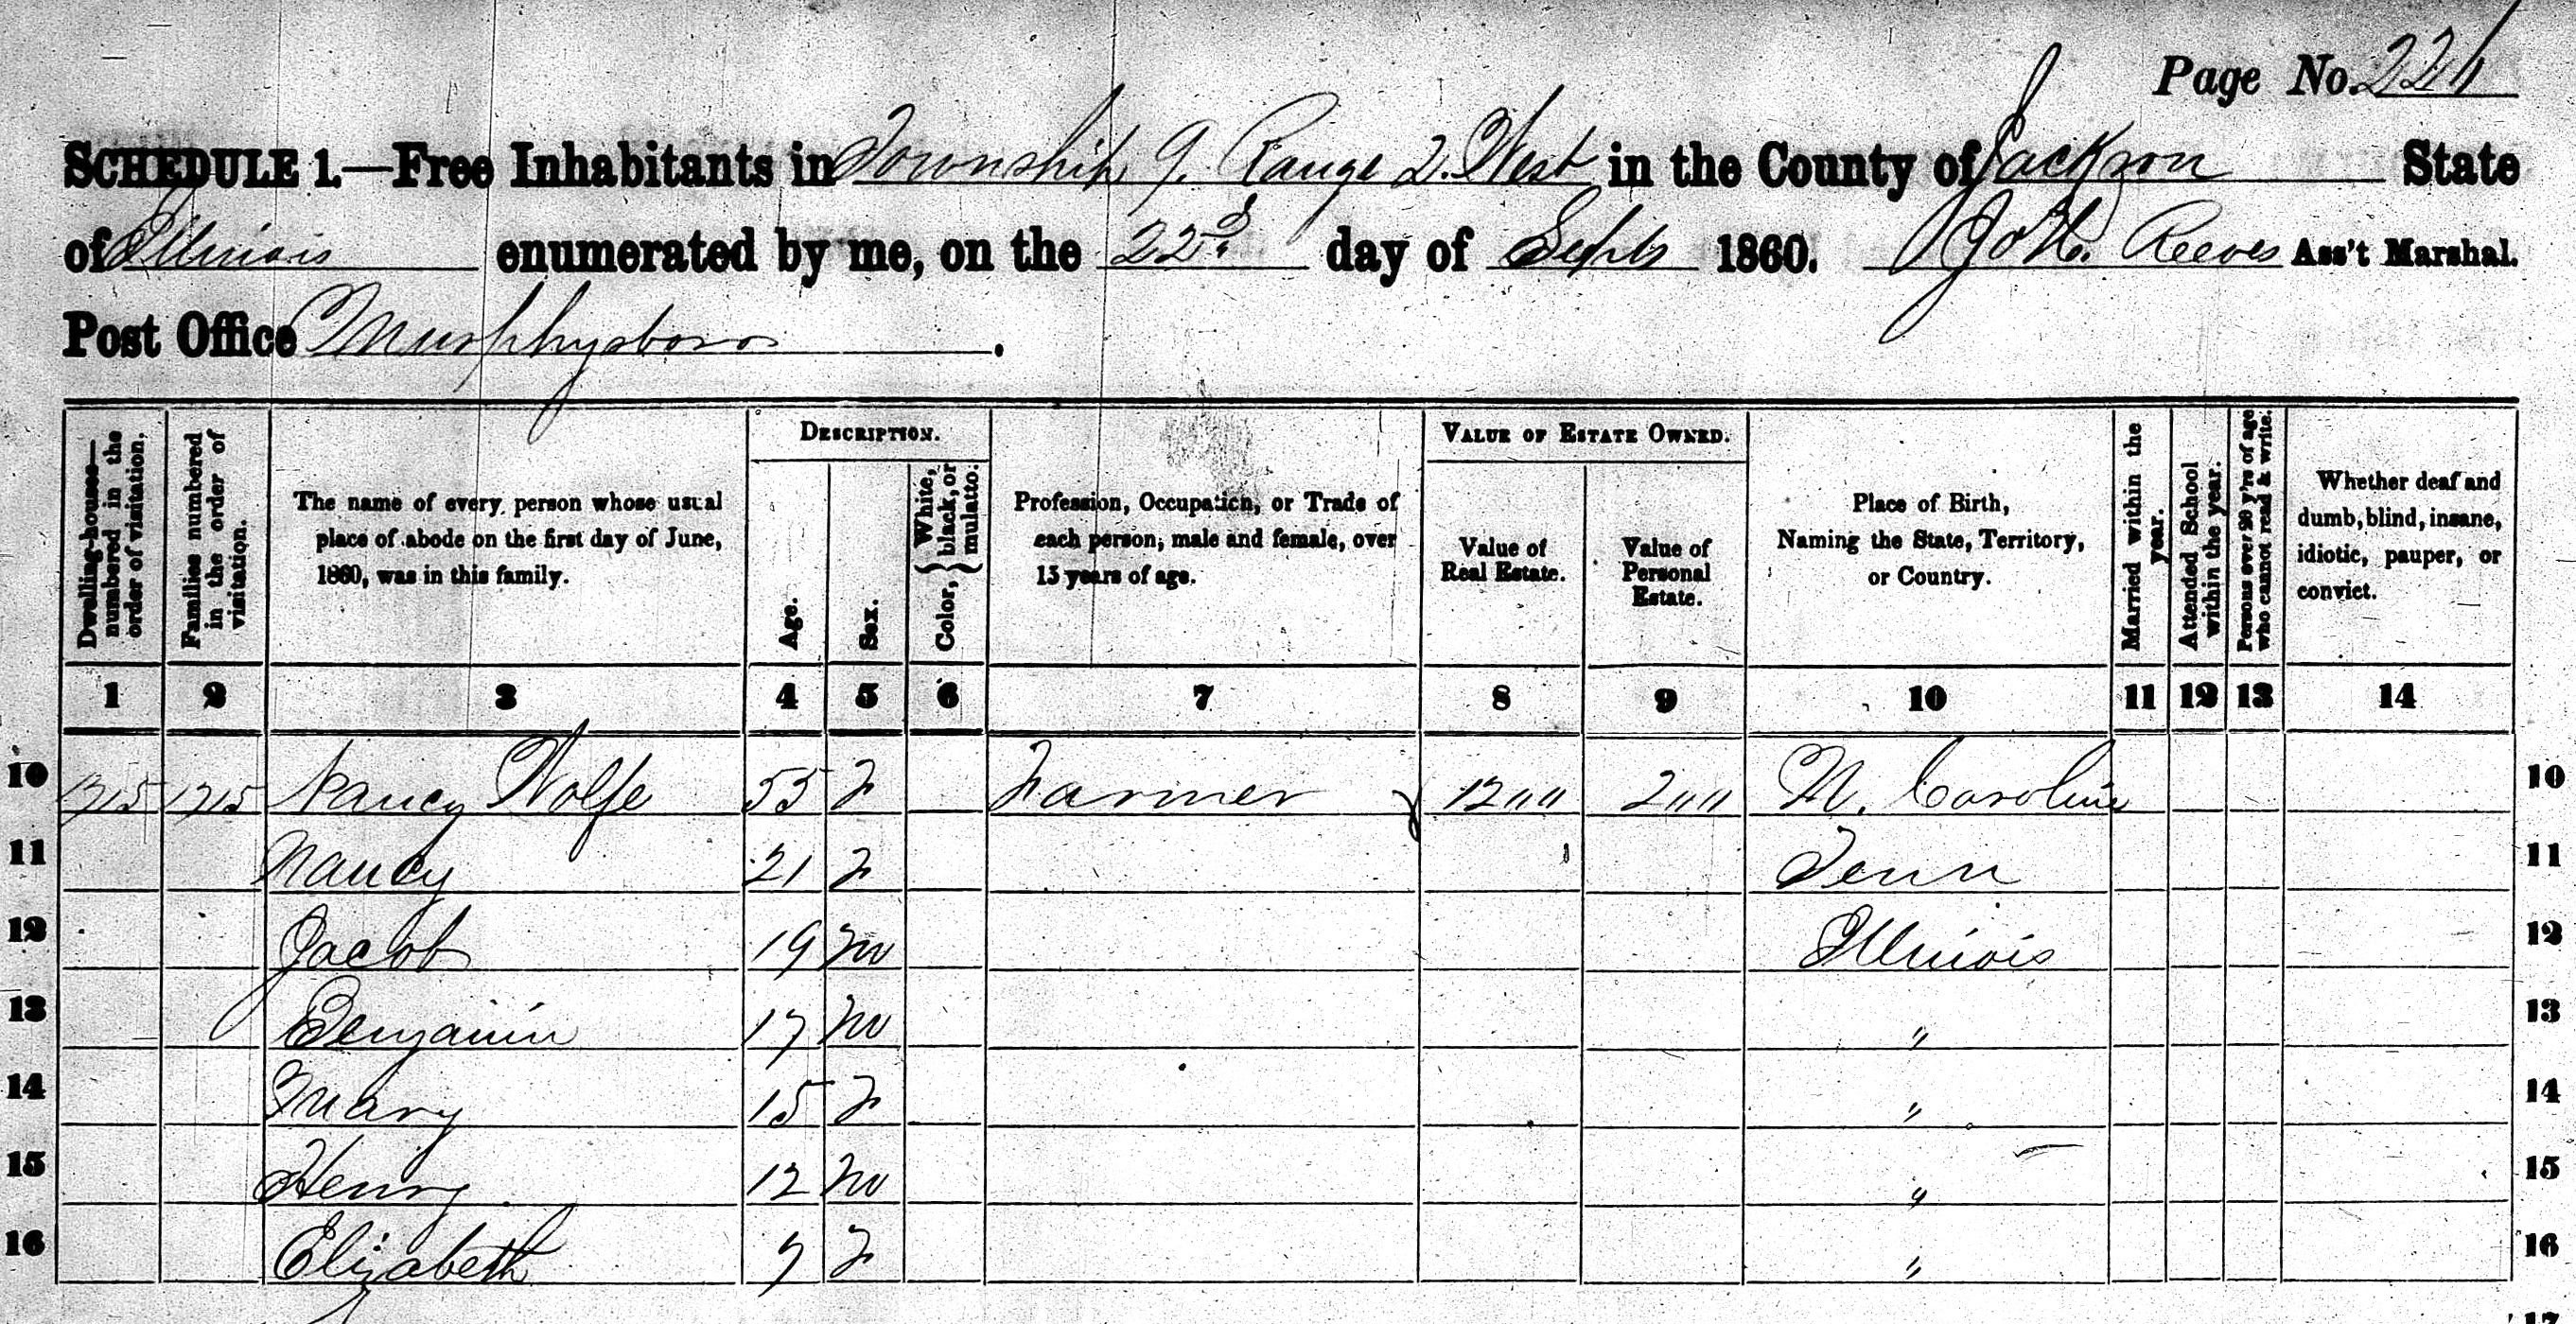 Page No. 221
SCHEDULE 1.—Free Inhabitants in Township 9. Range 2. West in the County of Jackson State
of Illinois enumerated by me, on the 22d. day of Sept 1860. Reeves Ass't Marshal.
Post Office Murphysboro.
DESCRIPTION.
VALUE OF ESTATE OWNED.
Dwelling-houses—numbered in the order of visitation.
Families numbered in the order of visitation.
The name of every person whose usual
place of abode on the first day of June,
1860, was in this family.
Age.
Sex.
Color, { White, black, or mulatto. }
Profession, Occupation, or Trade of
each person, male and female, over
15 years of age.
Value of
Real Estate.
Value of
Personal
Estate.
Place of Birth,
Naming the State, Territory,
or Country.
Married within the year.
Attended School within the year.
Persons over 20 y'rs of age who cannot read & write.
Whether deaf and
dumb, blind, insane,
idiotic, pauper, or
convict.
1 2 3 4 5 6 7 8 9 10 11 12 13 14
10 1715 1715 Nancy Wolfe 55 F Farmer 12"" 2"" N. Carolina 10
11 Nancy 21 F Tenn 11
12 Jacob 19 M Illinois 12
13 Benjamin 17 M " 13
14 Mary 15 F " 14
15 Henry 12 M " 15
16 Elizabeth 7 F " 16
17